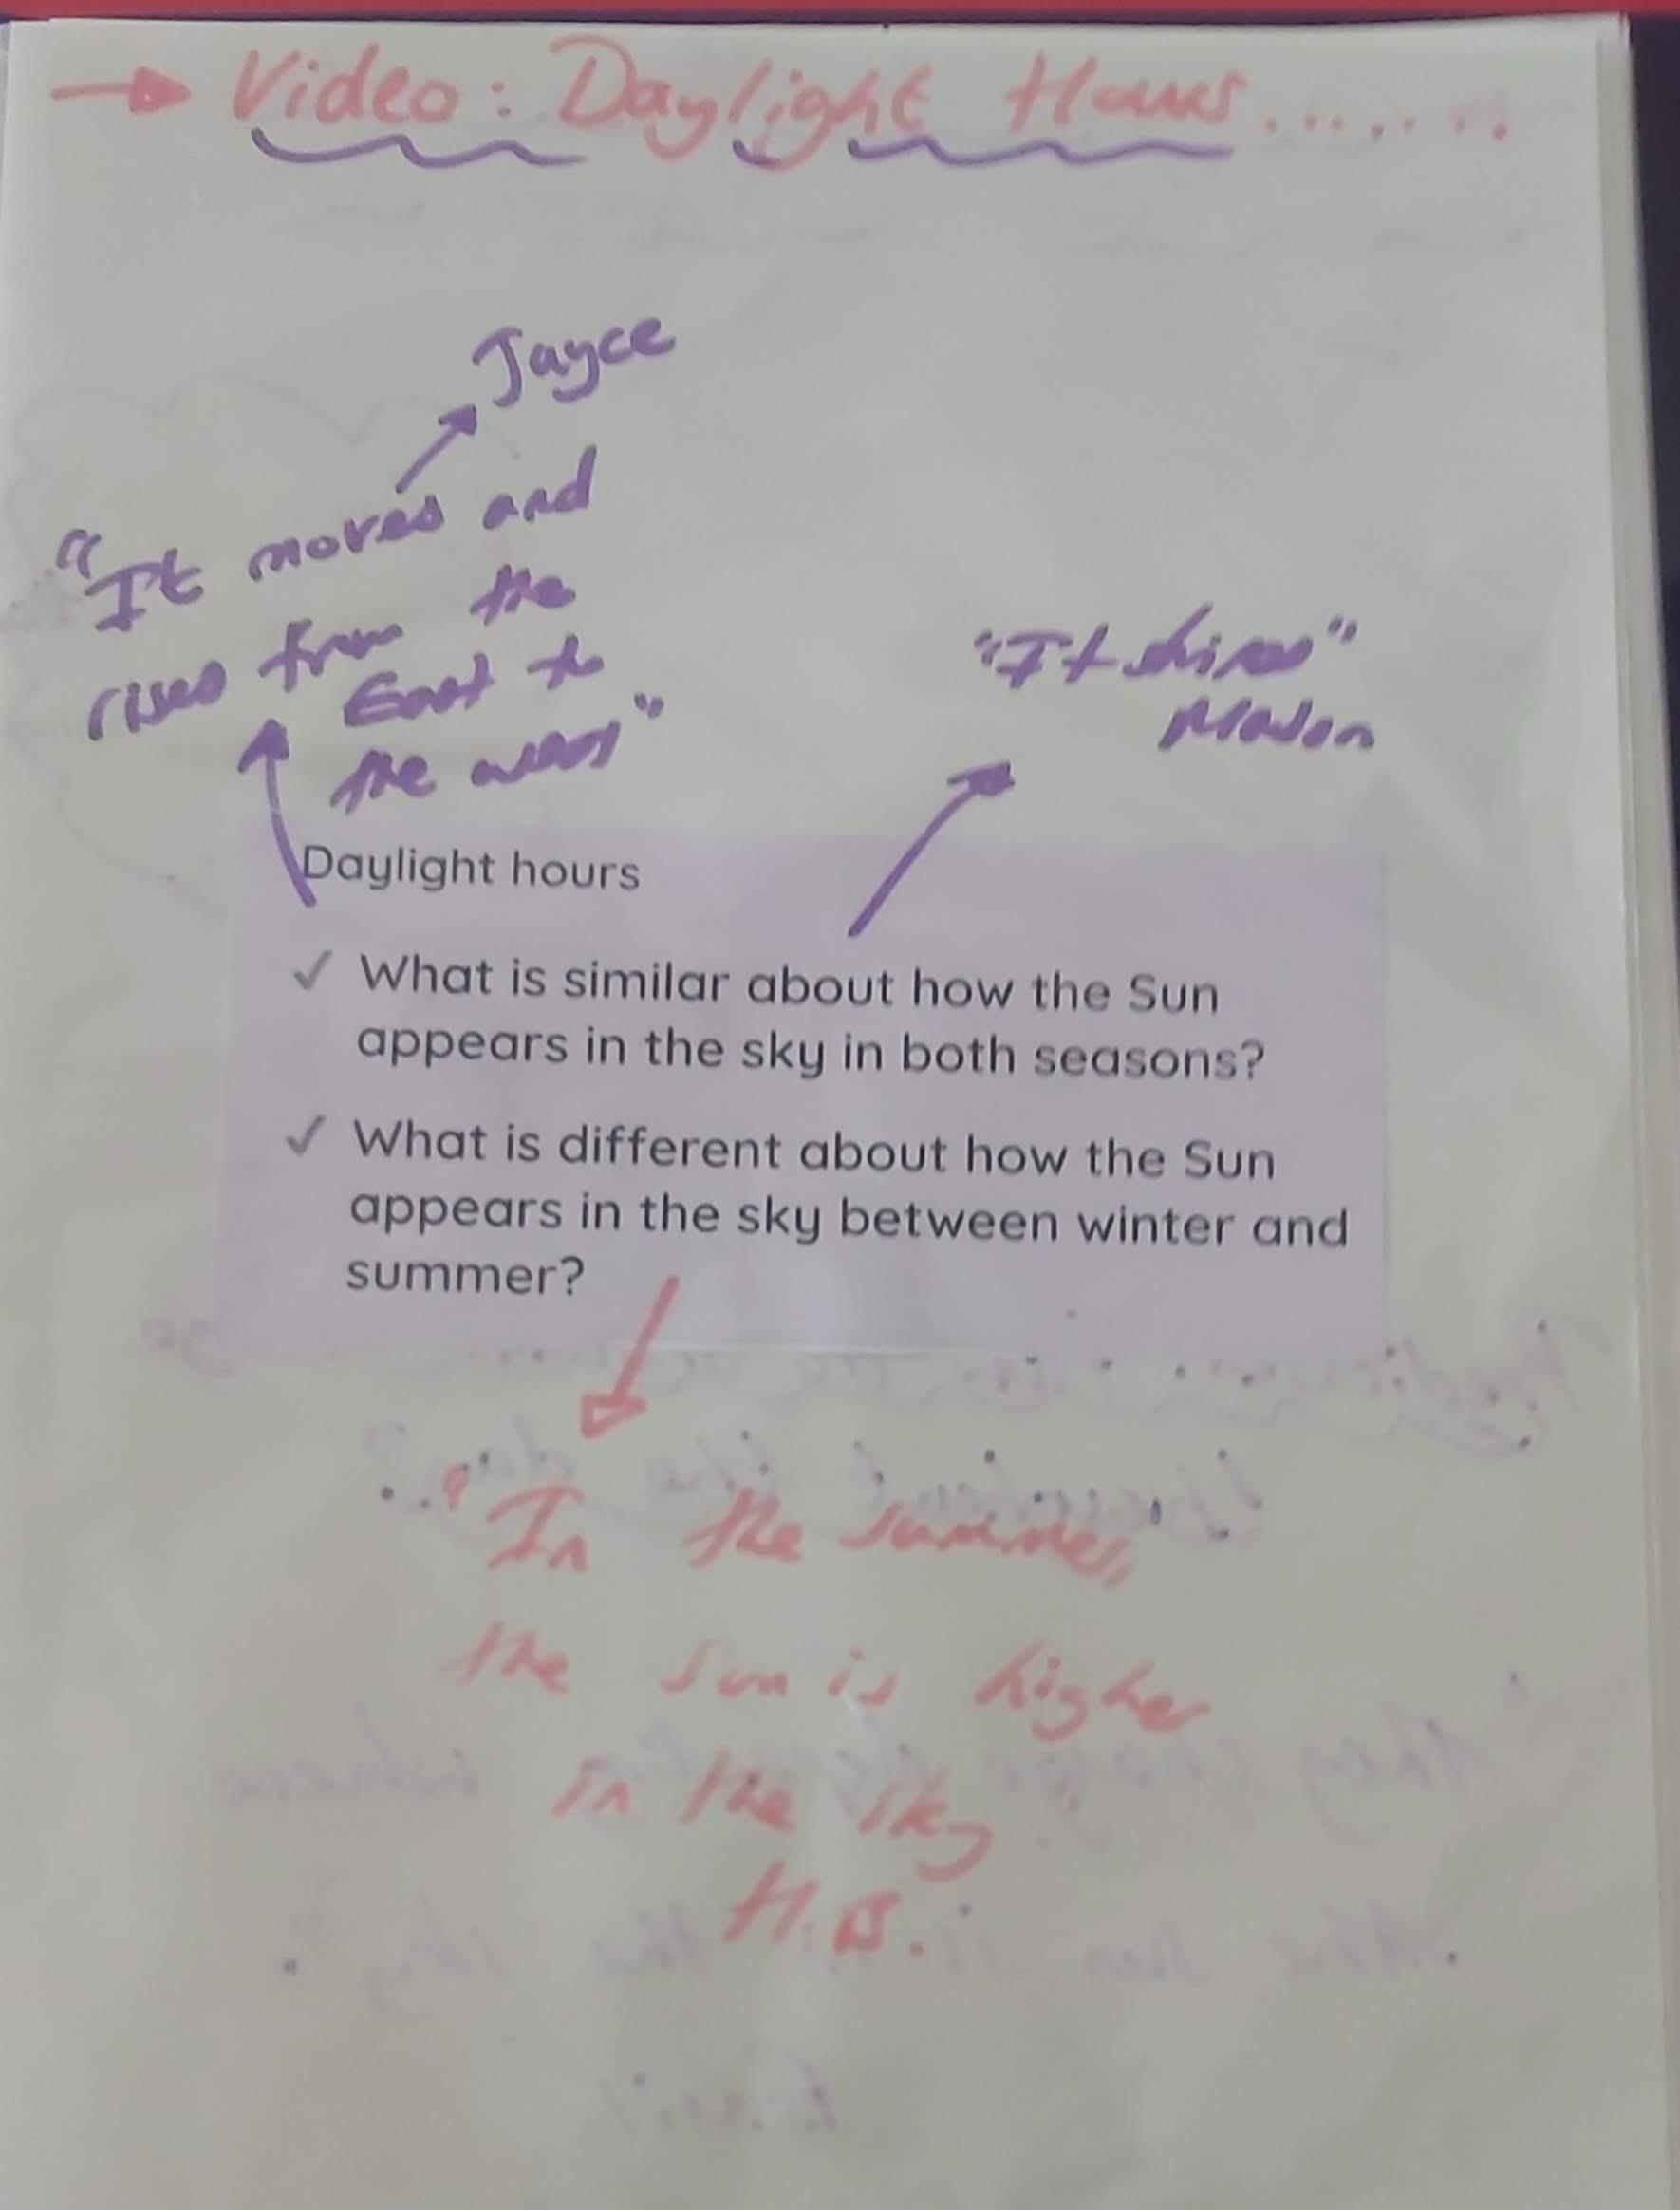 → Video: Daylight Hours.......
Jayce
"It moves and
rises from the
East to
the west"
"It shines"
Mason
Daylight hours
✓ What is similar about how the Sun
appears in the sky in both seasons?
✓ What is different about how the Sun
appears in the sky between winter and
summer?
"In the summer,
the sun is higher
in the sky
H.B.